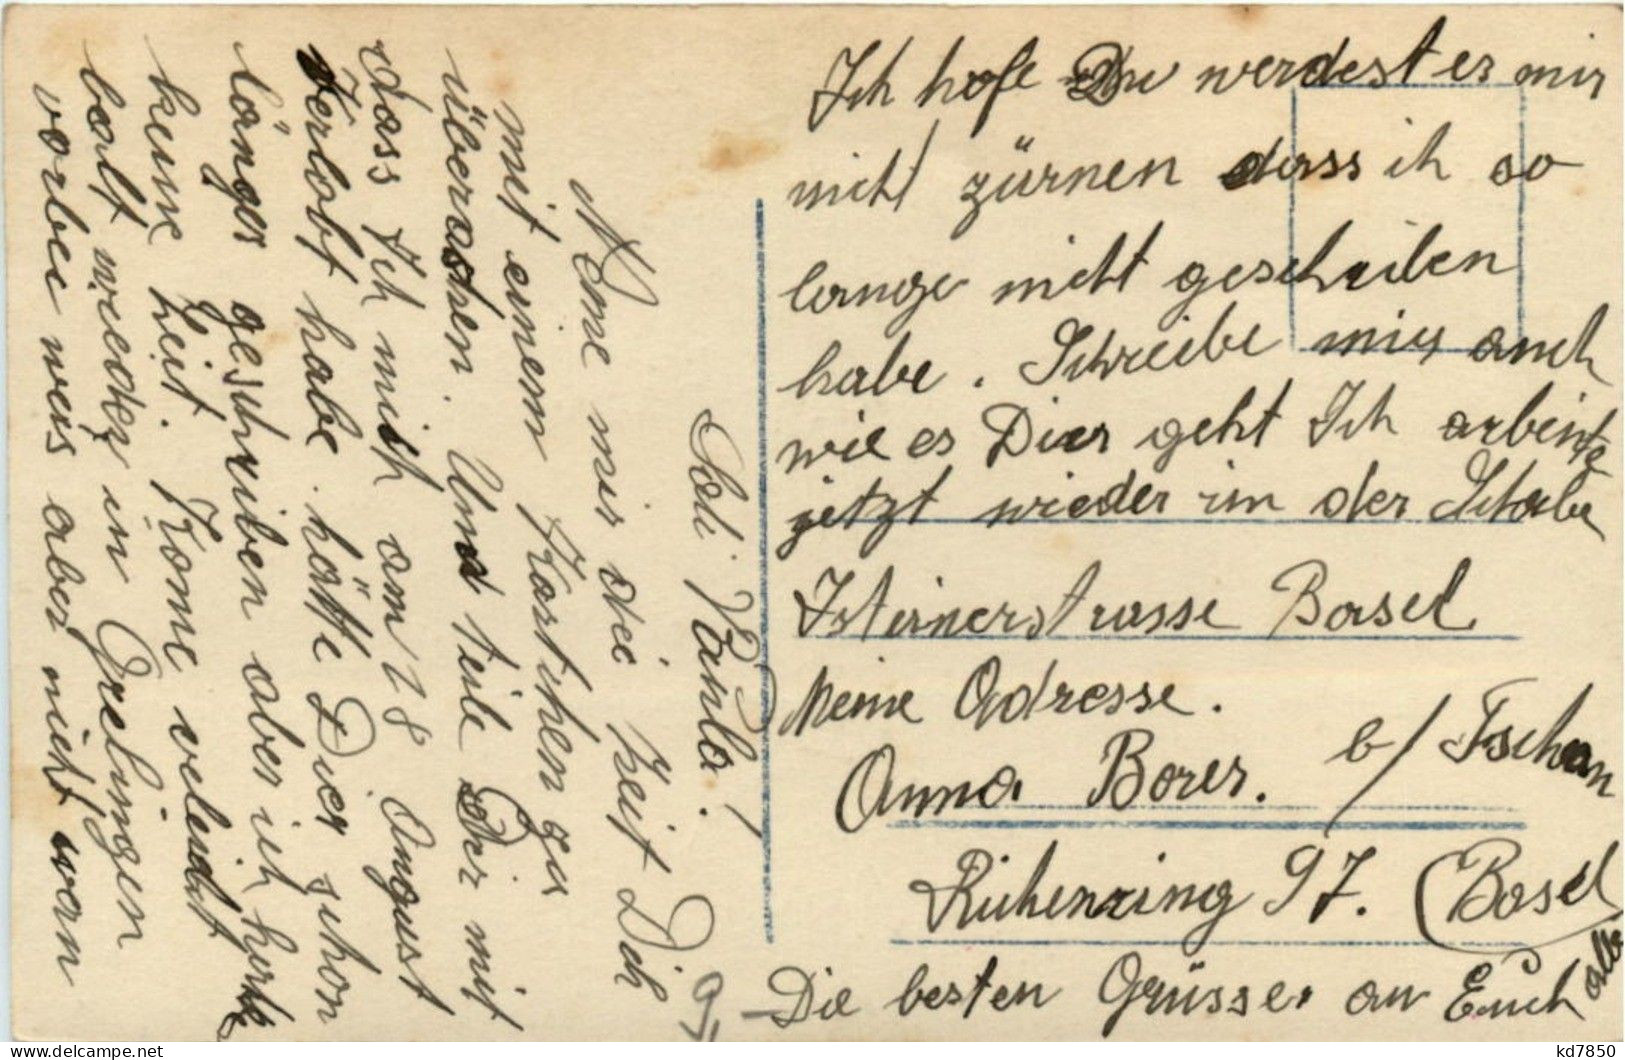 Loli Paula!
Neme mir die Zeit Dich
mit einem Kärtchen zu
überaschen. Und teile Dir mit
dass Ich mich am 28 August
Verlobt habe. hätte Dier schon
länger geschriben aber ich hate
keine Zeit. Kome veleicht
balt wieder in Grelingen
vorbei weis aber nicht wan
Ich hofe Du werdest es mir
nicht zürnen dass ich so
lange nicht geschriben
habe. Schreibe mir auch
wie es Dier geht Ich arbeite
jetzt wieder in der Schabe
Isteinerstrasse Basel
Meine Adresse.
Anna Borer. b/ Tschan
Riehenring 97. (Basel
Die besten Grüsse an Euch alle
kd7850